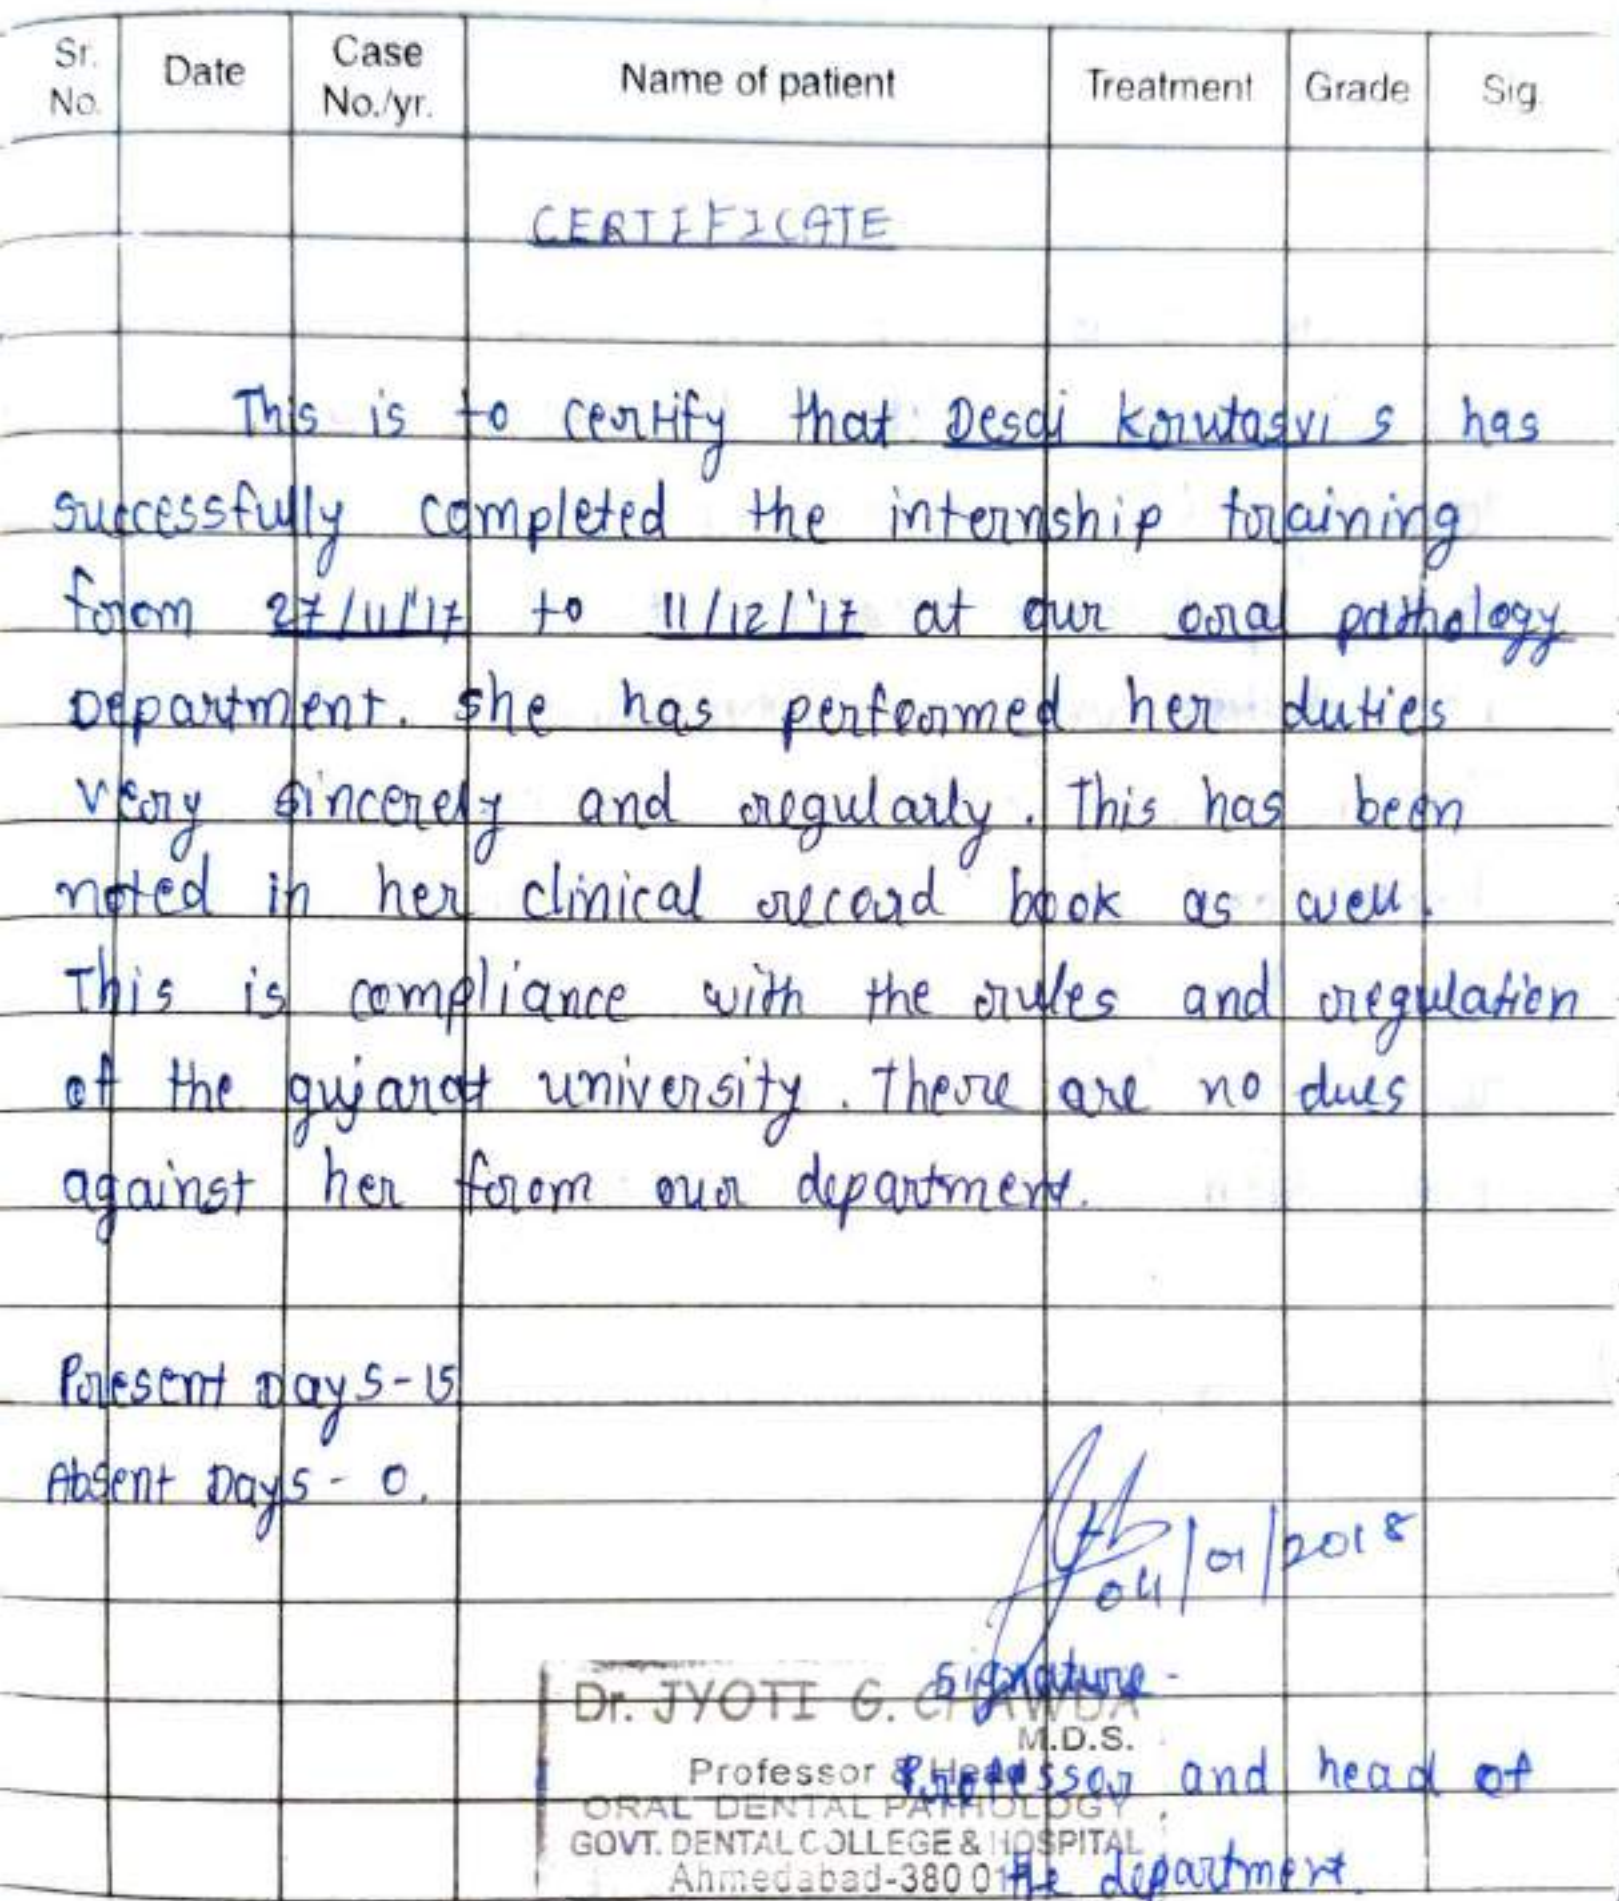 Sr. No. Date Case No./yr. Name of patient Treatment Grade Sig.
CERTIFICATE
This is to certify that Desai Krutasvi S has
successfully completed the internship training
from 27/11/'17 to 11/12/'17 at our oral pathology
Department. She has performed her duties
very sincerely and regularly. This has been
noted in her clinical record book as well.
This is compliance with the rules and regulation
of the gujarat university. There are no dues
against her from our department.
Present Days-15
Absent Days - 0.
04/01/2018
Signature -
Dr. JYOTI G. CHAWDA
M.D.S.
Professor & Head
Professor and head of
ORAL DENTAL PATHOLOGY
GOVT. DENTAL COLLEGE & HOSPITAL
Ahmedabad-380 01
the department.